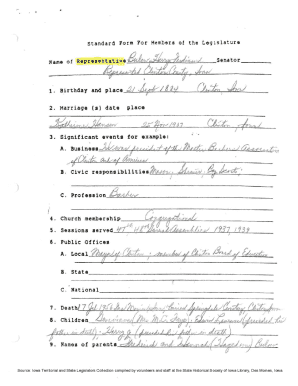 Standard Form For Members of the Legislature
Name of Representative Baker, Harry Senator
Represented Clinton County, Iowa
1. Birthday and place 21 Sept 1884 Clinton, Iowa
2. Marriage (s) date place
Katherine Hansen 25 Nov 1907 Clinton, Iowa
3. Significant events for example:
A. Business of the Master Barbers Association
of Clinton and of America
B. Civic responsibilities Mason, Shrine,
C. Profession Barber
4. Church membership Congregational
5. Sessions served 47th 48th General Assemblies 1937, 1939
6. Public Offices
A. Local Mayor of Clinton; member of Clinton Board of Education
B. State
C. National
7. Death 17 Jul Clinton,
8. Children
father in death); Harry Jr (preceded father in death)
9. Names of parents Frederick and Hannah Baker
Source: Iowa Territorial and State Legislators Collection compiled by volunteers and staff at the State Historical Society of Iowa Library, Des Moines, Iowa.